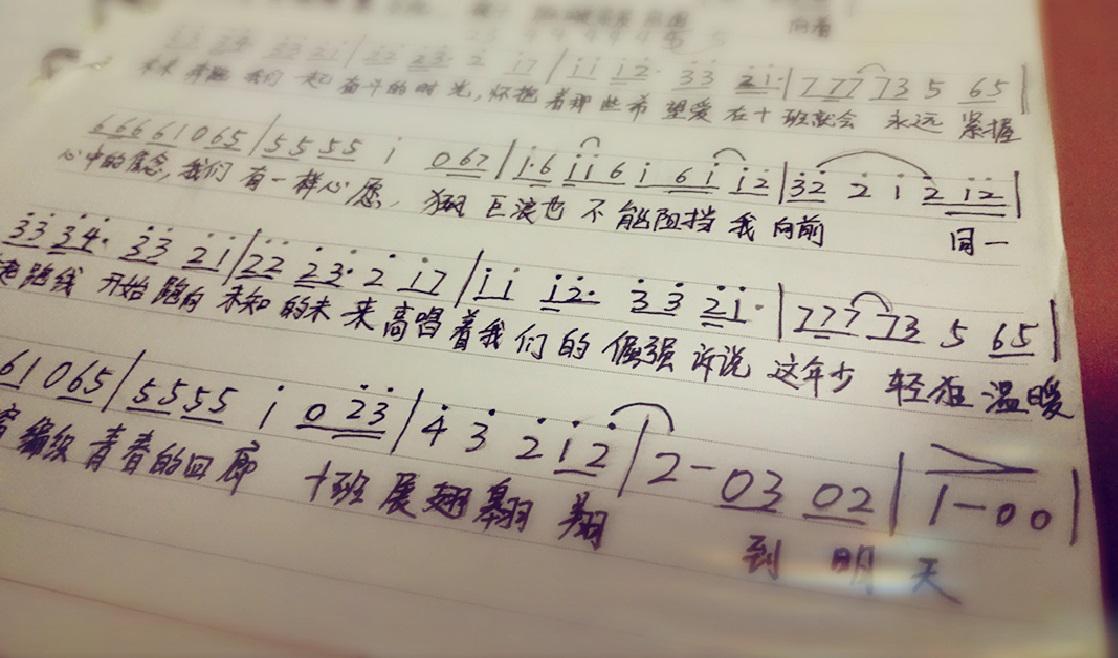 向着
3̇3̇ 2̇3̇· 2̇ i7 | ii i2̇· 3̇3̇ 2̇i· | 777 73 5 65 |
我们一起奋斗的时光,怀抱着那些希望爱在十班就会 永远 紧握
6666 1065 | 5555 i 067 | i·6 ii6 i 6i i2̇ | 3̇2̇ 2̇ i 2̇ i2̇ |
心中的信念,我们有一样心愿, 巨浪也不能阻挡我向前 同一
3̇3̇ 3̇4̇· 3̇3̇ 2̇i | 2̇2̇ 2̇3̇· 2̇ i7 | ii i2̇· 3̇3̇ 2̇i· | 777 73 5 65 |
跑线 开始跑向 未知的未来高唱着我们的倔强诉说 这年少 轻狂 温暖
61 065 | 5555 i 02̇3̇ | 4̇ 3̇ 2̇ i2̇ | 2- 03 02 | 1-00 |
编织 青春的回廊 十班展翅翱翔
到 明 天